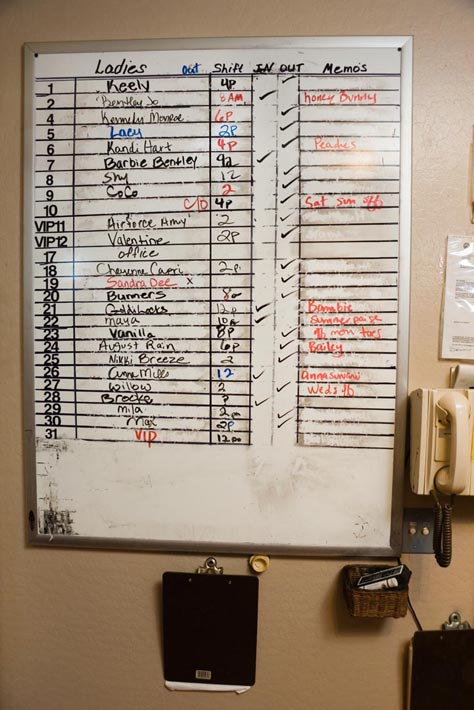 Ladies out Shift IN OUT Memo's
1 Keely 4p
2 Bentley Jo 8AM Honey Bunny
4 Kennedy Monroe 6p
5 Lacy 2p
6 Kandi Hart 4p Peaches
7 Barbie Bentley 9a
8 Shy 12
9 CoCo 2
10 C/O 4p Sat sun
VIP11 Airforce Amy 2
VIP12 Valentine 2p
17 office
18 Cheyenne 2p
19 Sandra Dee x
20 Bunners
21 Goldilocks 12p Bambie
22 maya 10a Summer paige
23 Vanilla 8p mon
24 August Rain 6p Bailey
25 Nikki Breeze 2
26 12
27 Willow 2 Weds
28 Brooke
29 mila 2pm
30 Max 2p
31 VIP 12